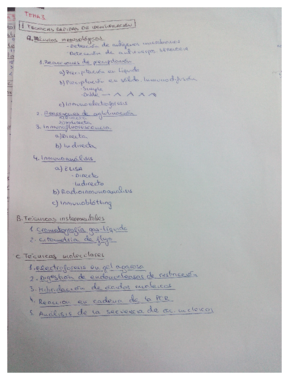 TEMA 2
1. TÉCNICAS RÁPIDAS DE IDENTIFICACIÓN
A. Técnicas inmunológicas
- Detección de antígenos
- Detección de anticuerpos
1. Reacciones de precipitación
a) Precipitación en líquido
b) Precipitación en sólido Inmunodifusión
Simple
Doble
c) Inmunoelectroforesis
2. Reacciones de aglutinación
3. Inmunofluorescencia
a) Directa
b) Indirecta
4. Inmunoanálisis
a) ELISA
- Directo
Indirecto
b) Radioinmunoanálisis
c) Inmunoblotting
B. Técnicas instrumentales
1. Cromatografía gas-líquido
2. Citometría de flujo
C. Técnicas moleculares
1. Electroforesis en gel agarosa
2. Digestión de endonucleasas de restricción
3. Hibridación de ácidos nucleicos
4. Reacción en cadena de la PCR
5. Análisis de la secuencia de ác. nucleicos